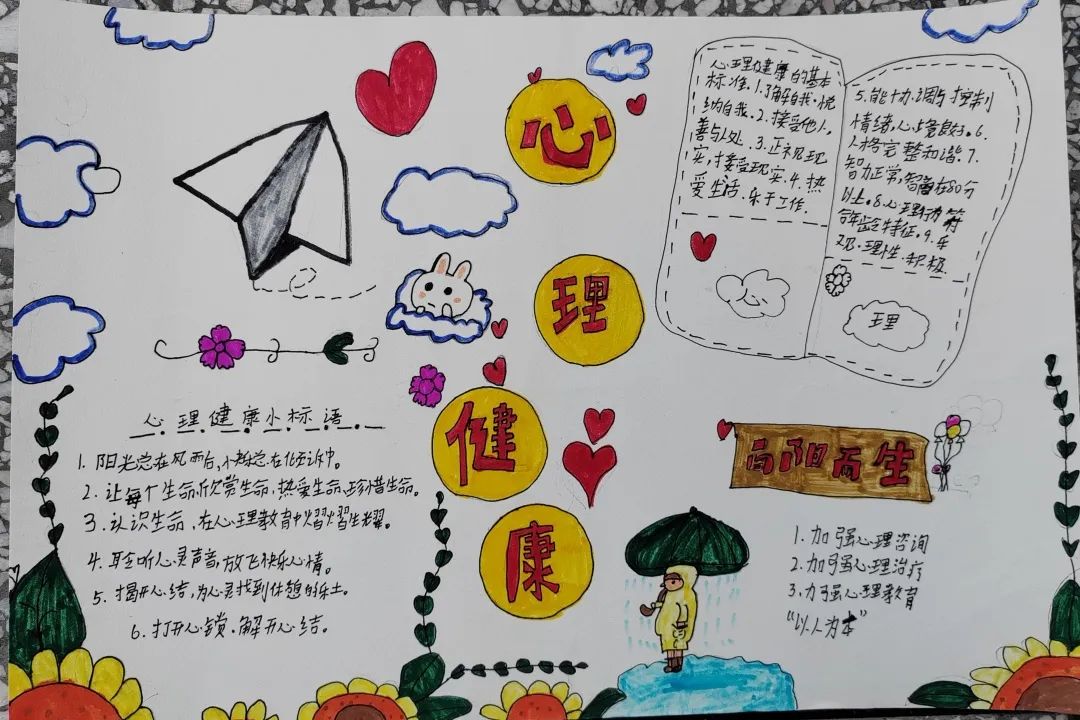 心
理
健
康
心理健康的基本
标准.1.了解自我.悦
纳自我.2.接受他人,
善与人处.3.正视现
实,接受现实.4.热
爱生活.乐于工作.
5.能协调与控制
情绪,心境良好.6.
人格完整和谐.7.
智力正常,智商在80分
以上.8.心理行为符
合年龄特征.9.乐
观.理性.积极.
心
理
心理健康小标语
1. 阳光总在风雨后,
2. 让每个生命欣赏生命,热爱生命,珍惜生命。
3. 认识生命,在心理教育中熠熠生辉。
4. 聆听心灵声音,放飞快乐心情。
5. 揭开心结,为心灵找到休憩的乐土。
6. 打开心锁.解开心结。
向阳而生
1. 加强心理咨询
2. 加强心理治疗
3. 加强心理教育
“以人为本”